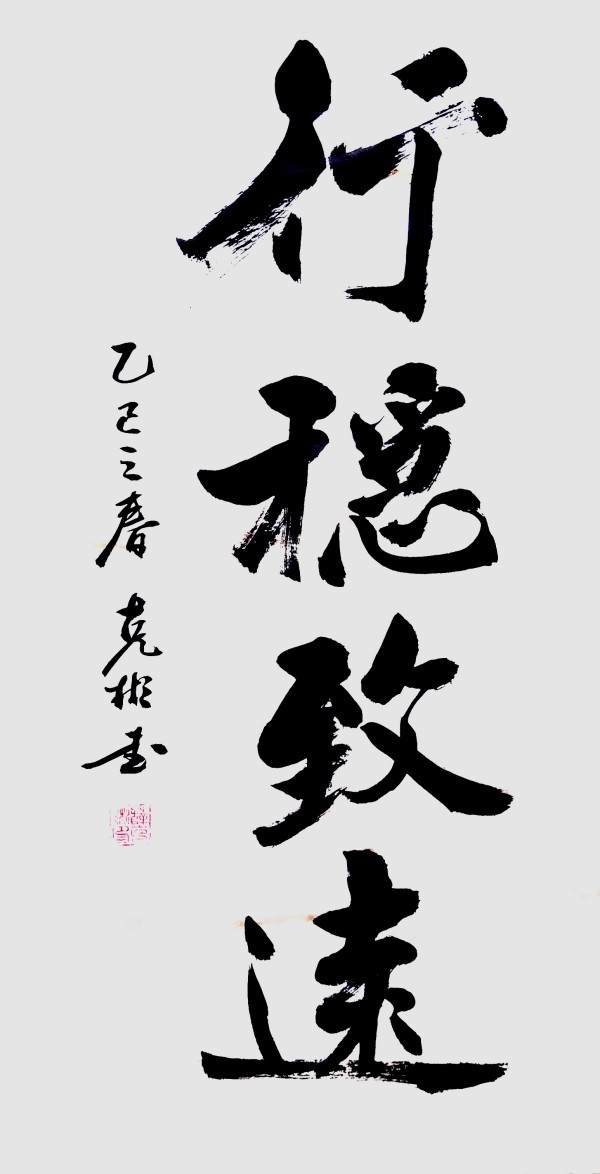 行穩致遠
乙巳之春 克彬書